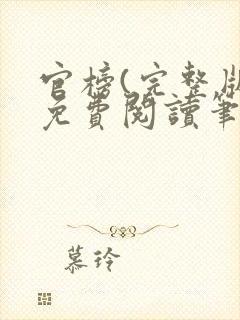 官榜(完整版
免費閱讀筆
慕玲